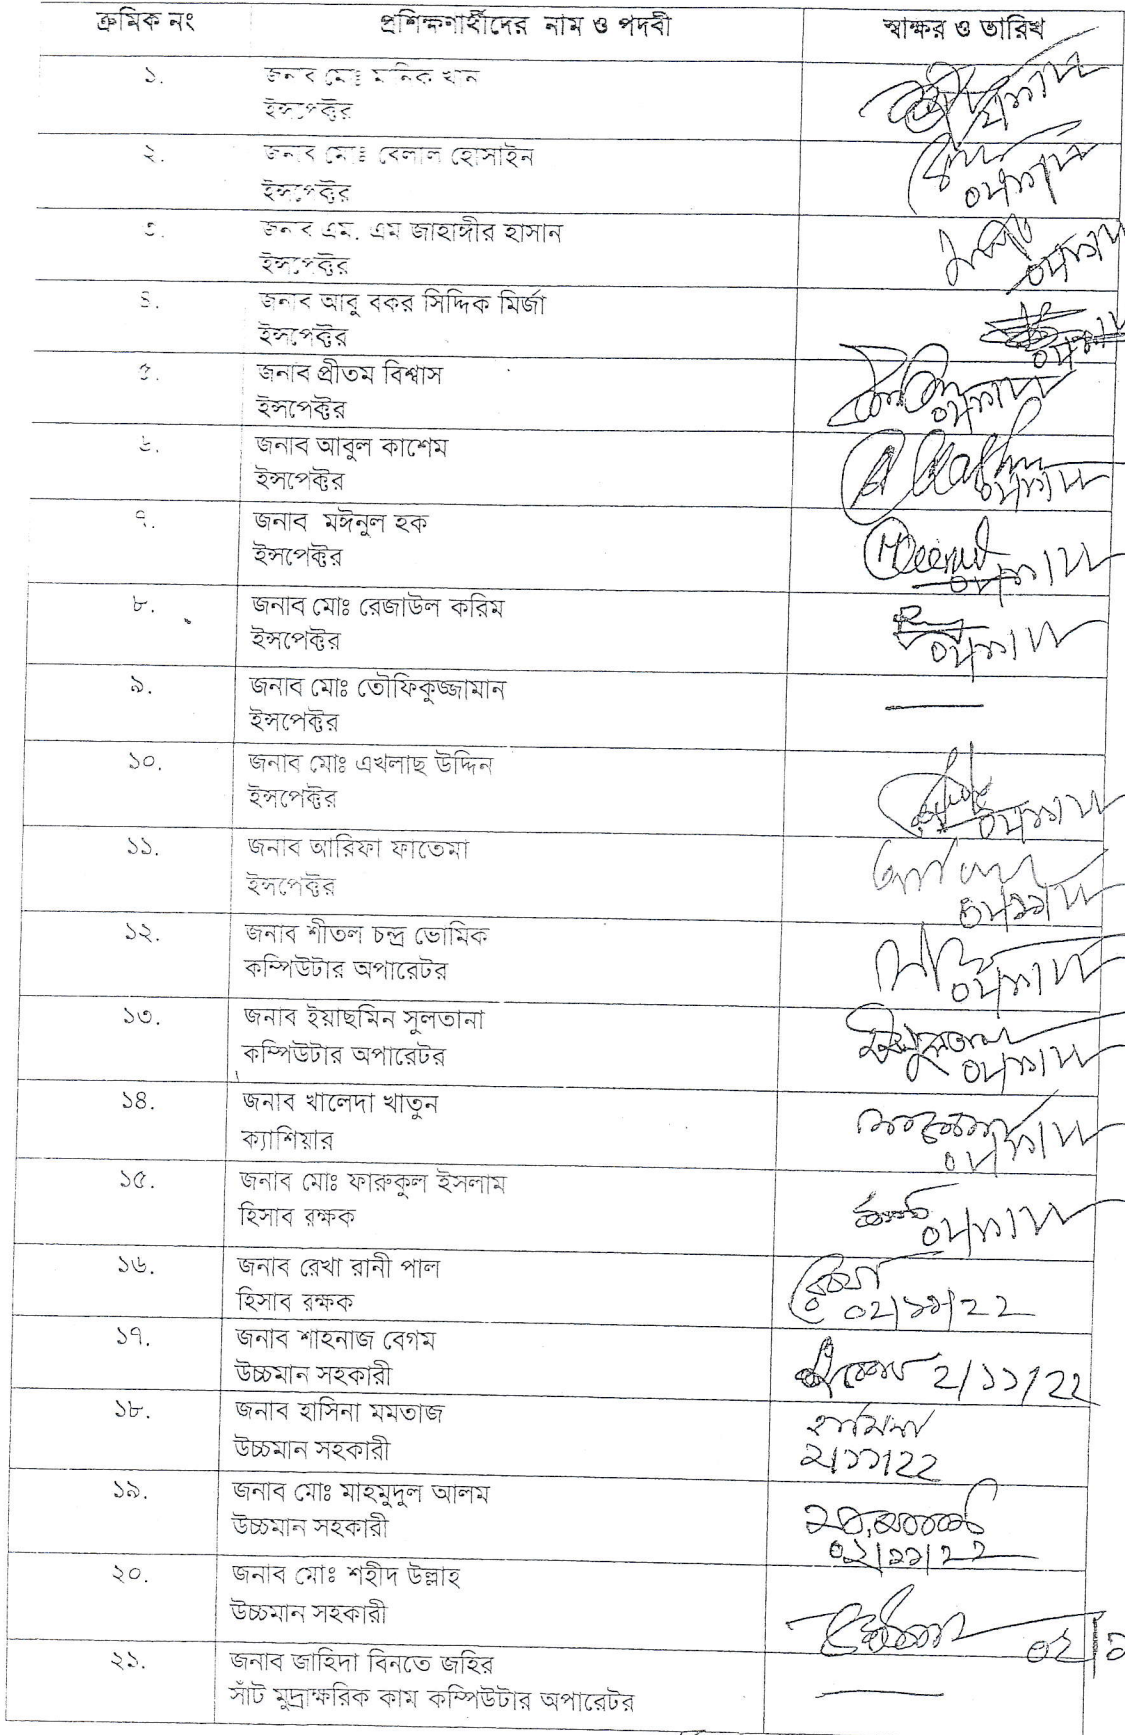 ক্রমিক নং প্রশিক্ষণার্থীদের নাম ও পদবী স্বাক্ষর ও তারিখ
১. জনাব মোঃ মানিক খান
ইন্সপেক্টর
২. জনাব মোঃ বেলাল হোসাইন
ইন্সপেক্টর
৩. জনাব এম. এম জাহাঙ্গীর হাসান
ইন্সপেক্টর
৪. জনাব আবু বকর সিদ্দিক মির্জা
ইন্সপেক্টর
৫. জনাব প্রীতম বিশ্বাস
ইন্সপেক্টর
৬. জনাব আবুল কাশেম
ইন্সপেক্টর
৭. জনাব মঈনুল হক
ইন্সপেক্টর
৮. জনাব মোঃ রেজাউল করিম
ইন্সপেক্টর
৯. জনাব মোঃ তৌফিকুজ্জামান
ইন্সপেক্টর
১০. জনাব মোঃ এখলাছ উদ্দিন
ইন্সপেক্টর
১১. জনাব আরিফা ফাতেমা
ইন্সপেক্টর
১২. জনাব শীতল চন্দ্র ভোমিক
কম্পিউটার অপারেটর
১৩. জনাব ইয়াছমিন সুলতানা
কম্পিউটার অপারেটর
১৪. জনাব খালেদা খাতুন
ক্যাশিয়ার
১৫. জনাব মোঃ ফারুকুল ইসলাম
হিসাব রক্ষক
১৬. জনাব রেখা রানী পাল রেখা
হিসাব রক্ষক ০২/১১/২২
১৭. জনাব শাহনাজ বেগম
উচ্চমান সহকারী ২/১১/২২
১৮. জনাব হাসিনা মমতাজ হাসিনা
উচ্চমান সহকারী ২/১১/২২
১৯. জনাব মোঃ মাহমুদুল আলম
উচ্চমান সহকারী ০২/১১/২২
২০. জনাব মোঃ শহীদ উল্লাহ
উচ্চমান সহকারী
২১. জনাব জাহিদা বিনতে জহির
সাঁট মুদ্রাক্ষরিক কাম কম্পিউটার অপারেটর